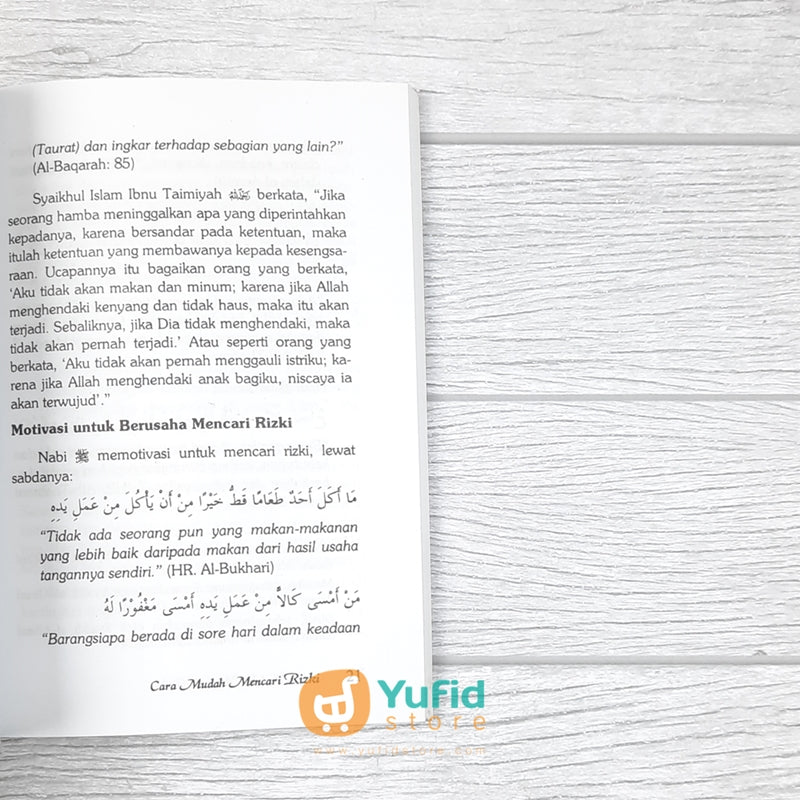 (Taurat) dan ingkar terhadap sebagian yang lain?"
(Al-Baqarah: 85)
Syaikhul Islam Ibnu Taimiyah berkata, "Jika
seorang hamba meninggalkan apa yang diperintahkan
kepadanya, karena bersandar pada ketentuan, maka
itulah ketentuan yang membawanya kepada kesengsa-
raan. Ucapannya itu bagaikan orang yang berkata,
'Aku tidak akan makan dan minum; karena jika Allah
menghendaki kenyang dan tidak haus, maka itu akan
terjadi. Sebaliknya, jika Dia tidak menghendaki, maka
tidak akan pernah terjadi.' Atau seperti orang yang
berkata, 'Aku tidak akan pernah menggauli istriku; ka-
rena jika Allah menghendaki anak bagiku, niscaya ia
akan terwujud'."
Motivasi untuk Berusaha Mencari Rizki
Nabi ﷺ memotivasi untuk mencari rizki, lewat
sabdanya:
مَا أَكَلَ أَحَدٌ طَعَامًا قَطُّ خَيْرًا مِنْ أَنْ يَأْكُلَ مِنْ عَمَلِ يَدِهِ
"Tidak ada seorang pun yang makan-makanan
yang lebih baik daripada makan dari hasil usaha
tangannya sendiri." (HR. Al-Bukhari)
مَنْ أَمْسَى كَالاًّ مِنْ عَمَلِ يَدِهِ أَمْسَى مَغْفُوْرًا لَهُ
"Barangsiapa berada di sore hari dalam keadaan
Cara Mudah Mencari Rizki 21
Yufid
store
www.yufidstore.com